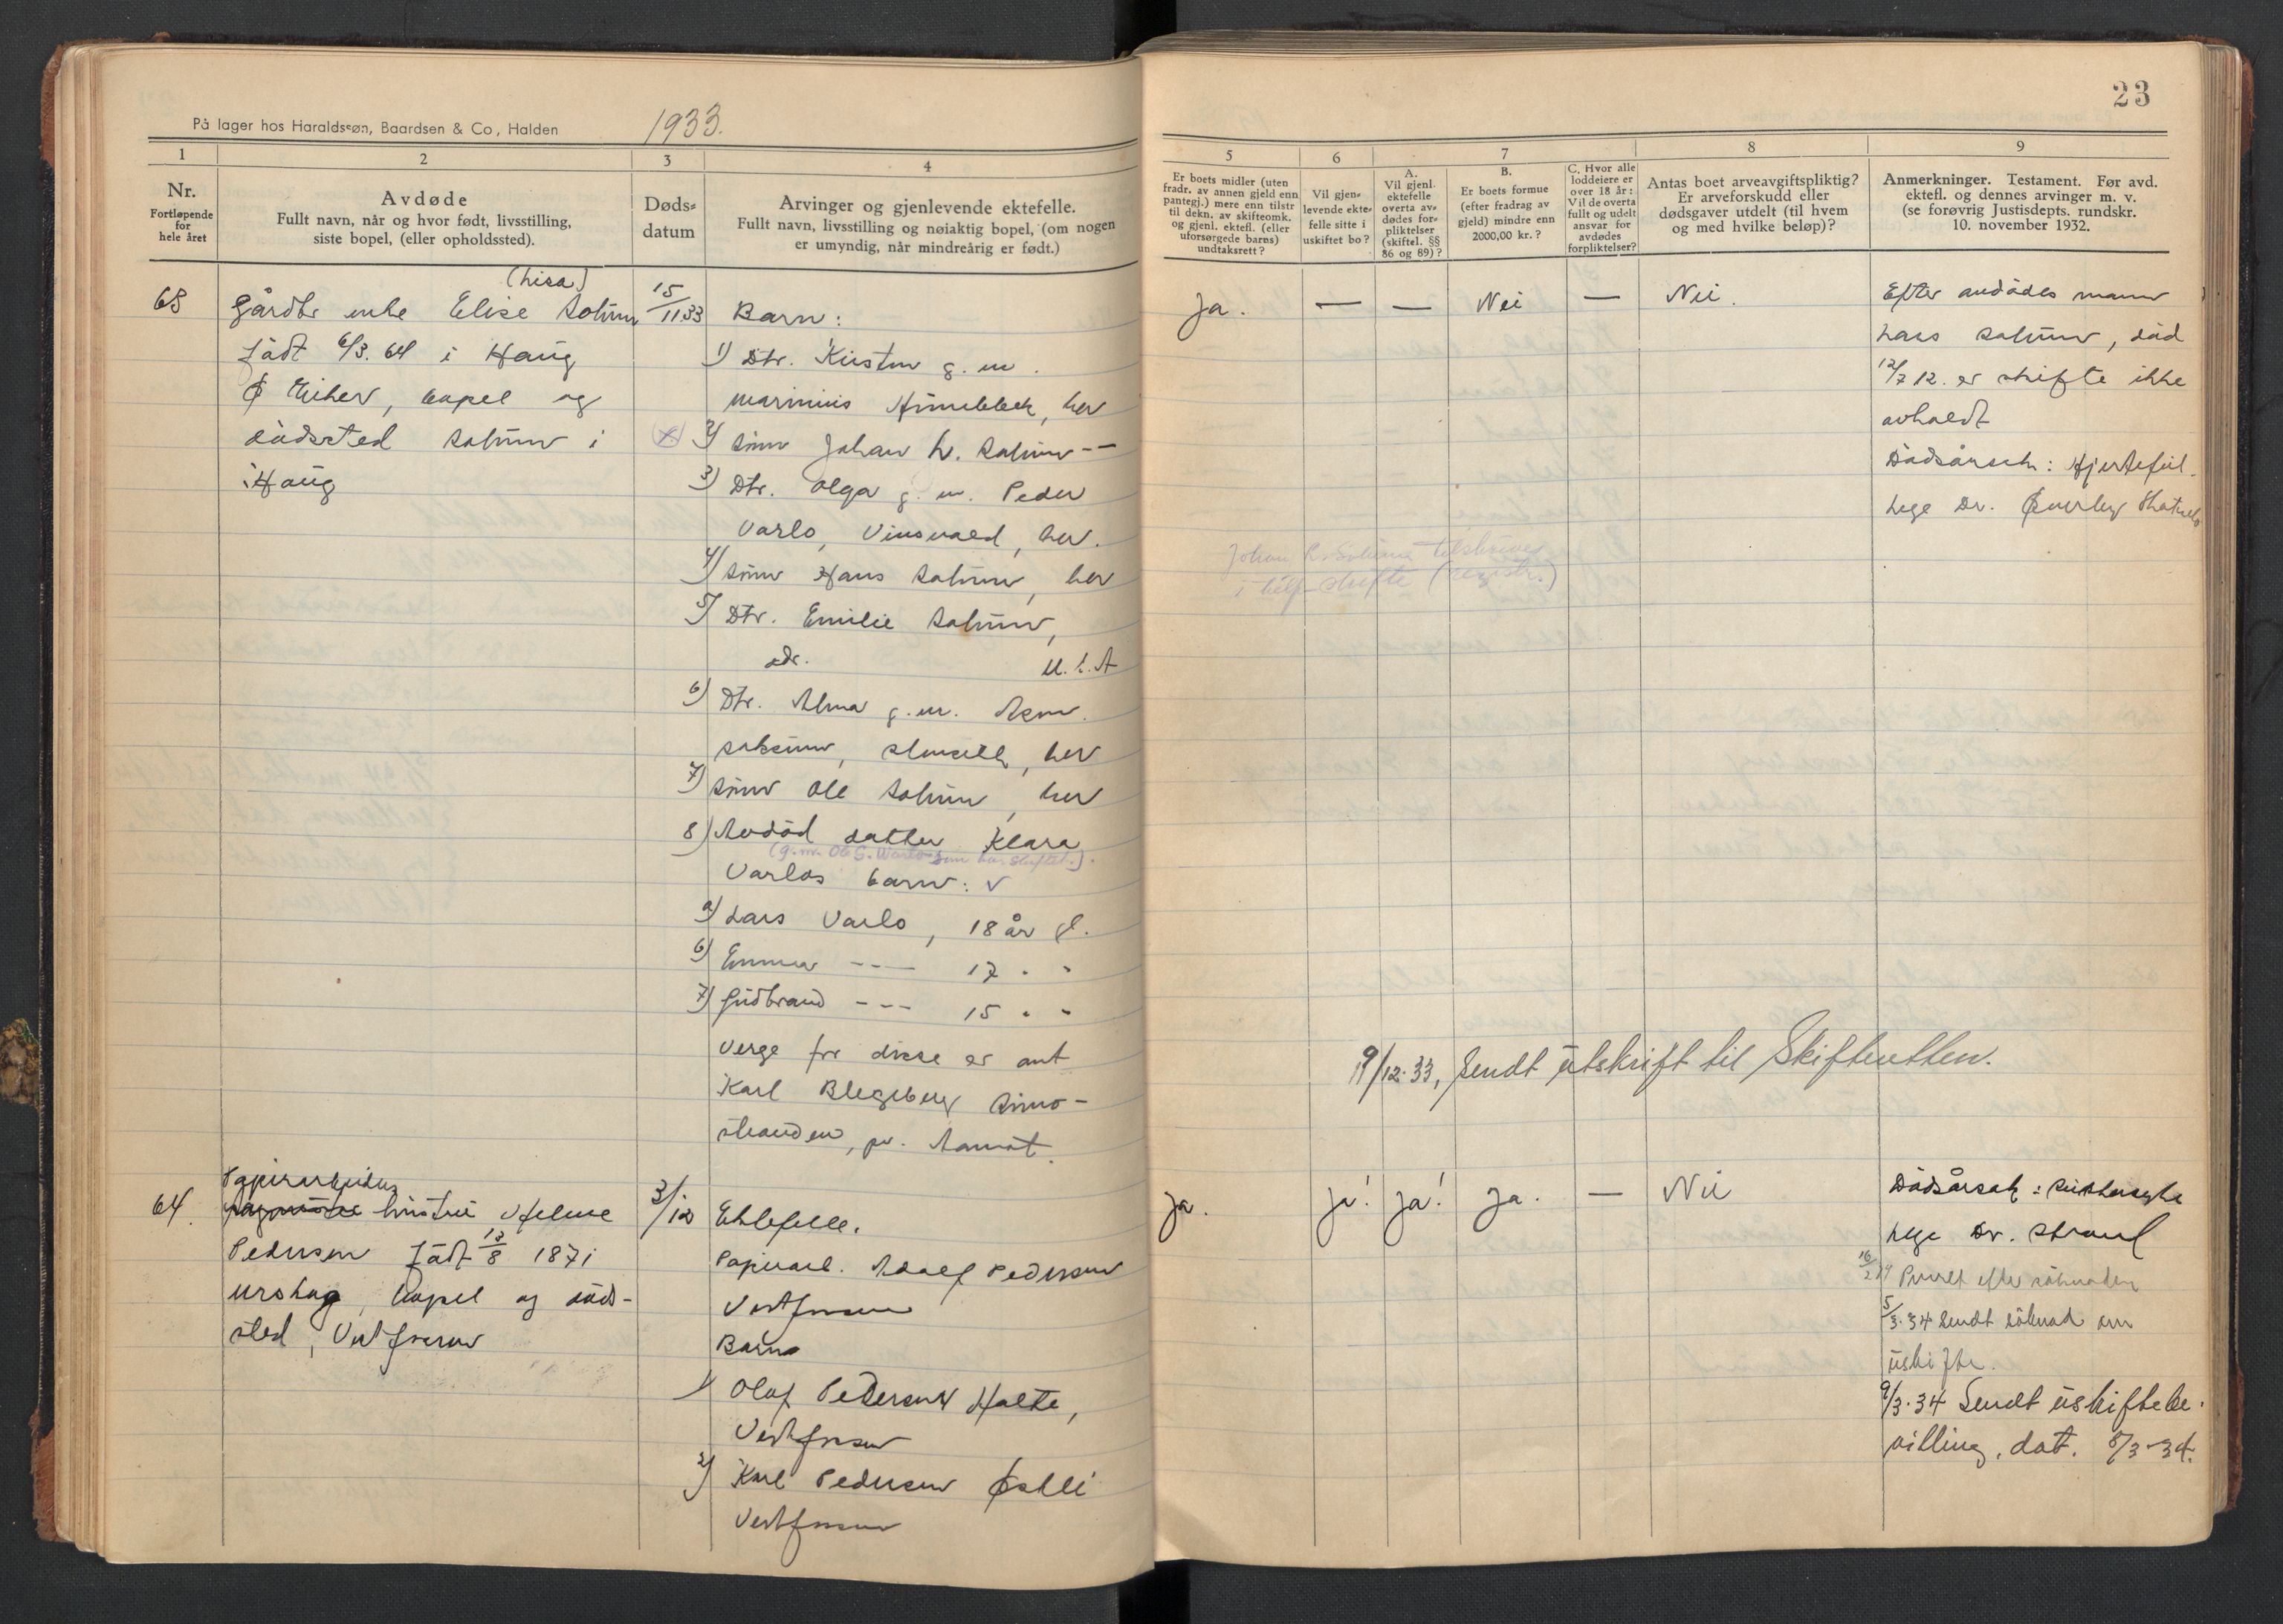 På lager hos Haraldssøn, Baardsen & Co, Halden
1933.
1
2
3
4
Nr.
Fortløpende
for
hele året
Avdøde
Fullt navn, når og hvor født, livsstilling,
siste bopel, (eller opholdssted).
Døds-
datum
Arvinger og gjenlevende ektefelle.
Fullt navn, livsstilling og nøiaktig bopel, (om nogen
er umyndig, når mindreårig er født.)
63
(Lisa)
Gårdbr enke Elise Solum
født 6/3. 64 i Haug
Ø Eiker, bopel og
dødssted Solum i
Haug
15/11 33
Barn:
1) Dtr. Kirsten g. m.
Marinius Himebbek, her
2) Sønn Johan L. Solum --
3) Dtr. Olga g. m. Peder
Varlo, Vinsvold, her.
4) Sønn Hans Solum, her
5) Dtr. Emilie Solum,
adr. U.S.A
6) Dtr. Alma g. m.
her
7) Sønn Ole Solum, her
8) Avdød datter Klara
(g. m. Ole G. Varlo som har skiftet.).
Varlos barn: v
a) Lars Varlo, 18 år gl.
b) Emma --- 17 " "
7) Gudbrand --- 15 " "
Verge for disse er ant
Karl Blegeberg Simo-
stranden, pr. Aamot.
64.
Papirarbeider
hustru Helene
Pedersen født 13/8 1871
bopel og døds-
sted, Vestfossen
3/12
Ektefelle.
Papirarb. Adolf Pedersen
Vestfossen
Barn
1) Olaf Pedersen Holte,
Vestfossen
2) Karl Pedersen Østli
Vestfossen
23
5
6
7
8
9
Er boets midler (uten
fradr. av annen gjeld enn
pantegj.) mere enn tilstr
til dekn. av skifteomk.
og gjenl. ektefl. (eller
uforsørgede barns)
undtaksrett?
Vil gjen-
levende ekte-
felle sitte i
uskiftet bo?
A.
Vil gjenl.
ektefelle
overta av-
dødes for-
pliktelser
(skiftel. §§
86 og 89)?
B.
Er boets formue
(efter fradrag av
gjeld) mindre enn
2000,00 kr.?
C. Hvor alle
loddeiere er
over 18 år:
Vil de overta
fullt og udelt
ansvar for
avdødes
forpliktelser?
Antas boet arveavgiftspliktig?
Er arveforskudd eller
dødsgaver utdelt (til hvem
og med hvilke beløp)?
Anmerkninger. Testament. Før avd.
ektefl. og dennes arvinger m. v.
(se forøvrig Justisdepts. rundskr.
10. november 1932.
Ja. — — Nei — Nei.
Efter avdødes mann
Lars Solum, død
12/7 12. er skifte ikke
avholdt
Dødsårsak: Hjertefeil.
Lege Dr. Øverby
Johan L. Solum tilskrives
i skifte (registr.)
9/12.33, Sendt utskrift til Skifteretten.
Ja. ja! ja! ja. — Nei
Dødsårsak: Sukkersyke
Lege Dr. Strand
16/2 34 Purret efter søknaden
5/3.34 Sendt søknad om
uskifte.
9/3.34 Sendt uskiftebe-
villing, dat. 8/3-34.